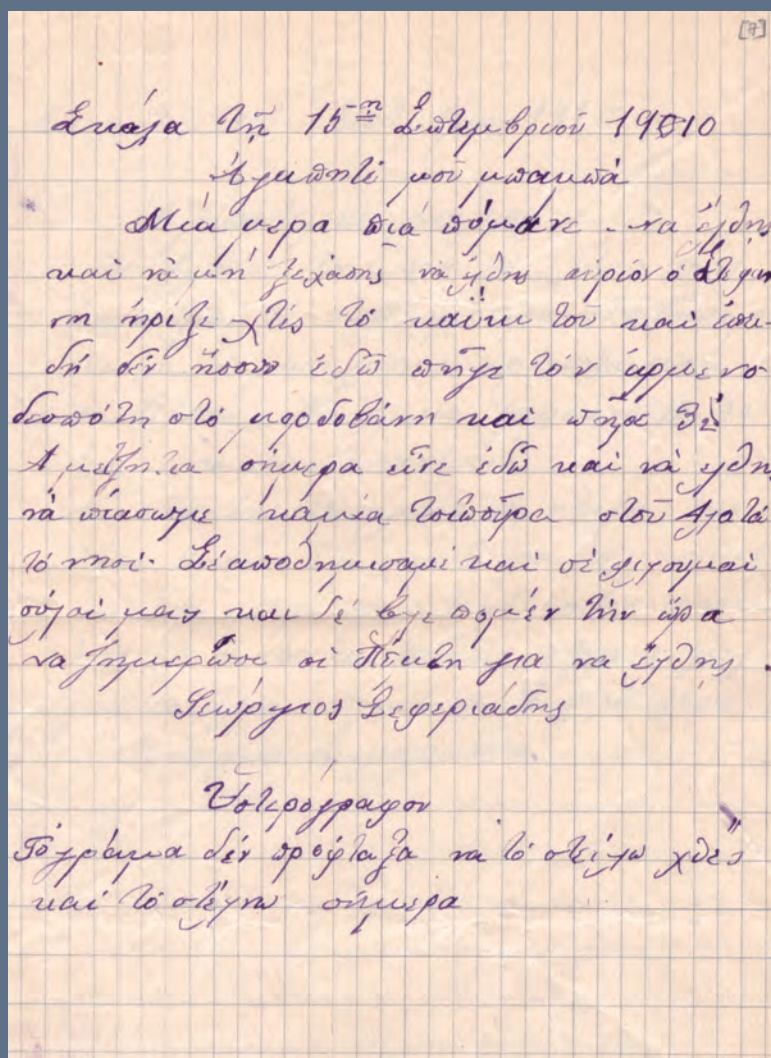 [7]
Σκάλα τῇ 15-η Σεπτεμβριοῦ 1910
Ἀγαπητέ μοῦ μπαμπά
Μιά μερα πιά πόμενε να ἔλθης
καὶ νὰ μὴ ξεχάσης νὰ ἔλθης αὔριον ὁ Στεφα
νη ἤριξε χτὲς τὸ καΰκι του καὶ ἐπει-
δή δέν ἤσουν ἐδῶ πῆγε τόν ἀρμενο
δεσπότη στό μορδοβάνη και πῆρε 3
Α μετζήτια σήμερα εἶνε ἐδῶ καὶ νά ἔλθης
νὰ πιάσωμε καμία τσιπούρα στοῦ Αλατά
τό νησί. Σέ αποθημισαμε καὶ σέ φιλουμαι
οὗλοι μας και δέ βλεπομέν τήν ὥρα
να ξημερώσι οἱ Πέμτη για να ἔλθης .
Γεώργιος Σεφεριάδης
Ὑστερόγραφον
Τό γράμα δέν προφταξα να τό στείλω χθές
καί τό στέλνω σήμερα